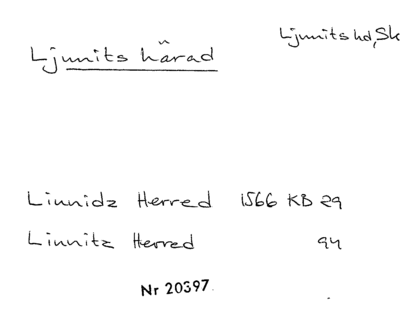 Ljunits hd, Sk
Ljunits härad
Liunidz Herred 1566 KB 29
Liunitz Herred 94
Nr 20397.